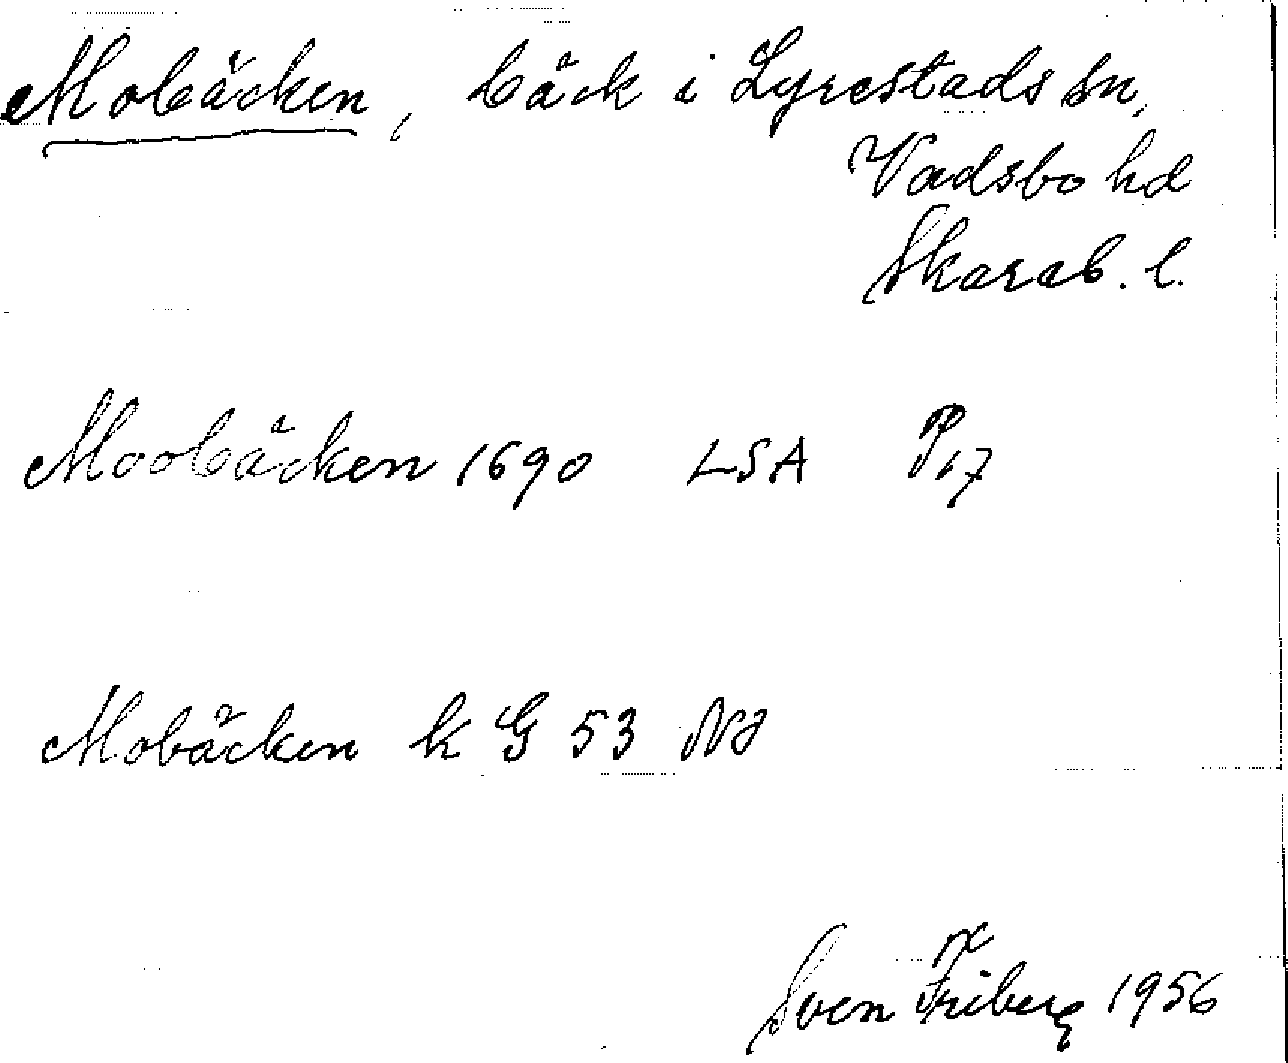 Mobäcken, bäck i Lyrestads sn,
Vadsbo hd
Skarab. l.
Moobäcken 1690 LSA P17
Mobäcken k G 53 NV
Sven Friberg 1956